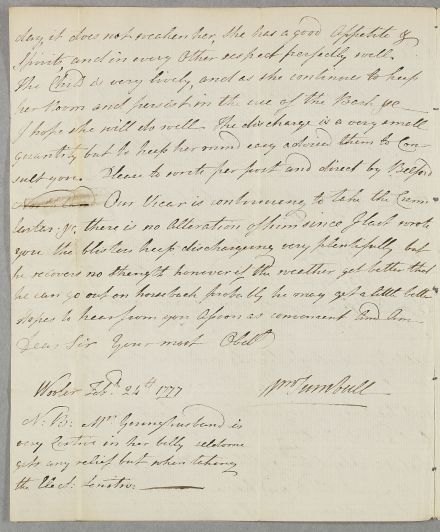 day, it does not weaken her, she has a good Appetite &
Spirits, and in every Other respect perfectly well.
The Child is very lively, and as she continues to keep
her Room and persist in the use of the Bark &c
I hope she will do well. The discharge is a very small
quantity but to keep her mind easy advised them to Con
sult you. Please to wrote per post and direct by Belford
Our Vicar is continueing to take the
&c. there is no Alteration of him since I last wrote
you the blisters keep dischargeing very plentyfully but
he recovers no strenght however if the weather get better that
he can go out on horseback probably he may get a little better
hopes to hear from you Assoon as convenient And Am
Dear Sir Your most Obedt
Wooler Feby. 24th 1777 Wm Turnbull
N: B: Mrs is
very Costive in her belly seldome
gets any relief but when takeing
the Elect: Lenitiv: